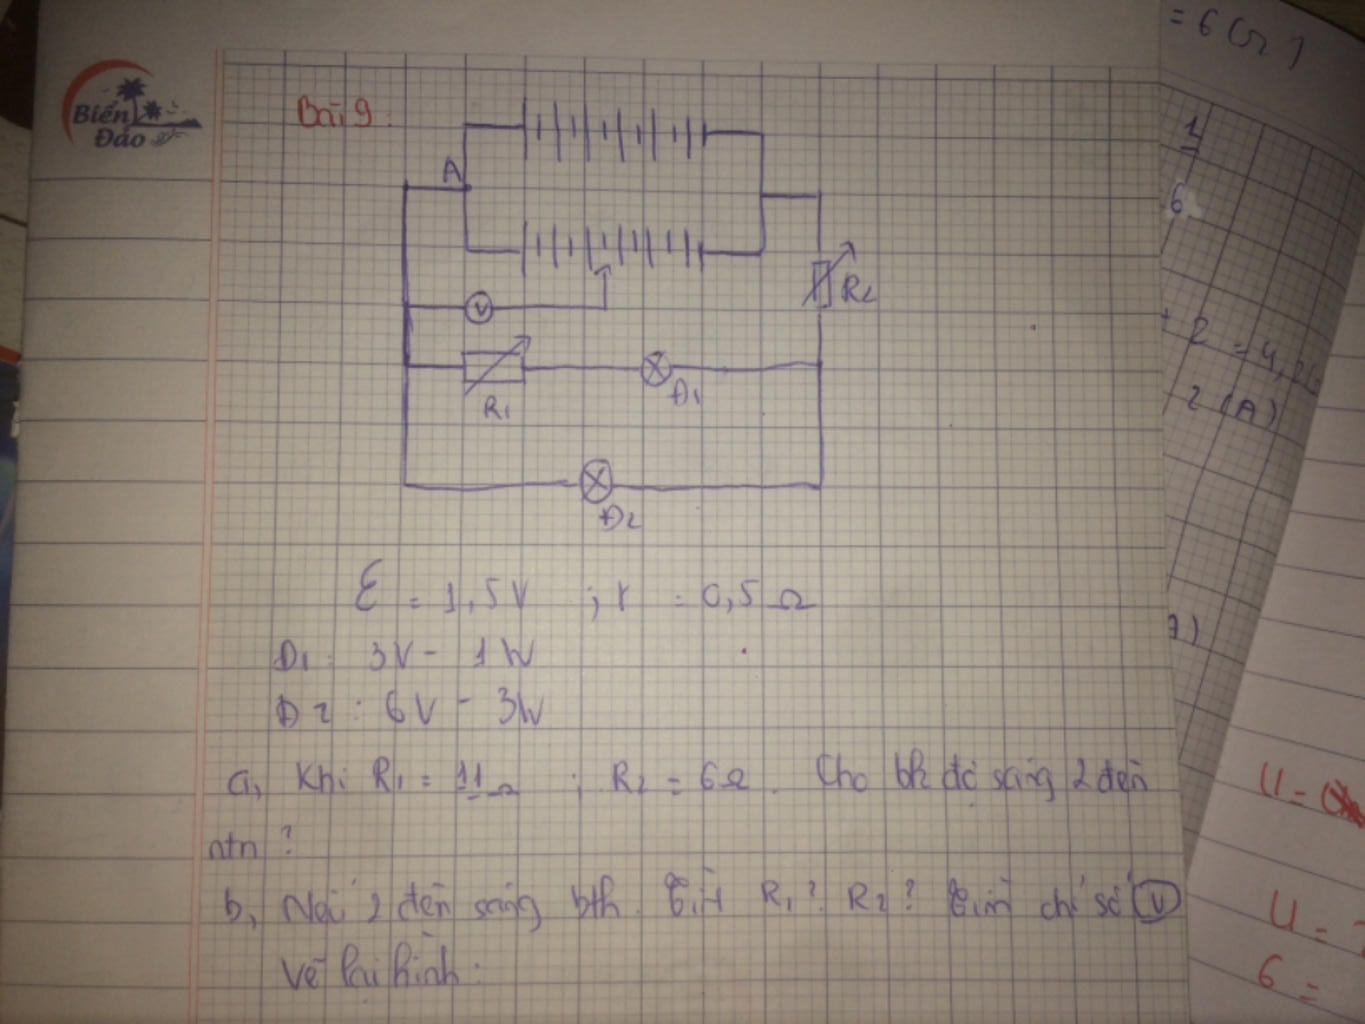 Biển
Đảo
Bài 9:
A
V
R2
R1
Đ1
Đ2
ℰ = 1,5V ; r = 0,5Ω
Đ1: 3V - 1W
Đ2: 6V - 3W
a, Khi R1 = 11Ω ; R2 = 6Ω. Cho bk độ sáng 2 đèn
ntn?
b, Nếu 2 đèn sáng bth. R1? R2? chỉ số V
Vẽ lại hình.
= 6 (Ω)
1
6
2 = 4,
2 (A)
U =
U =
6 =